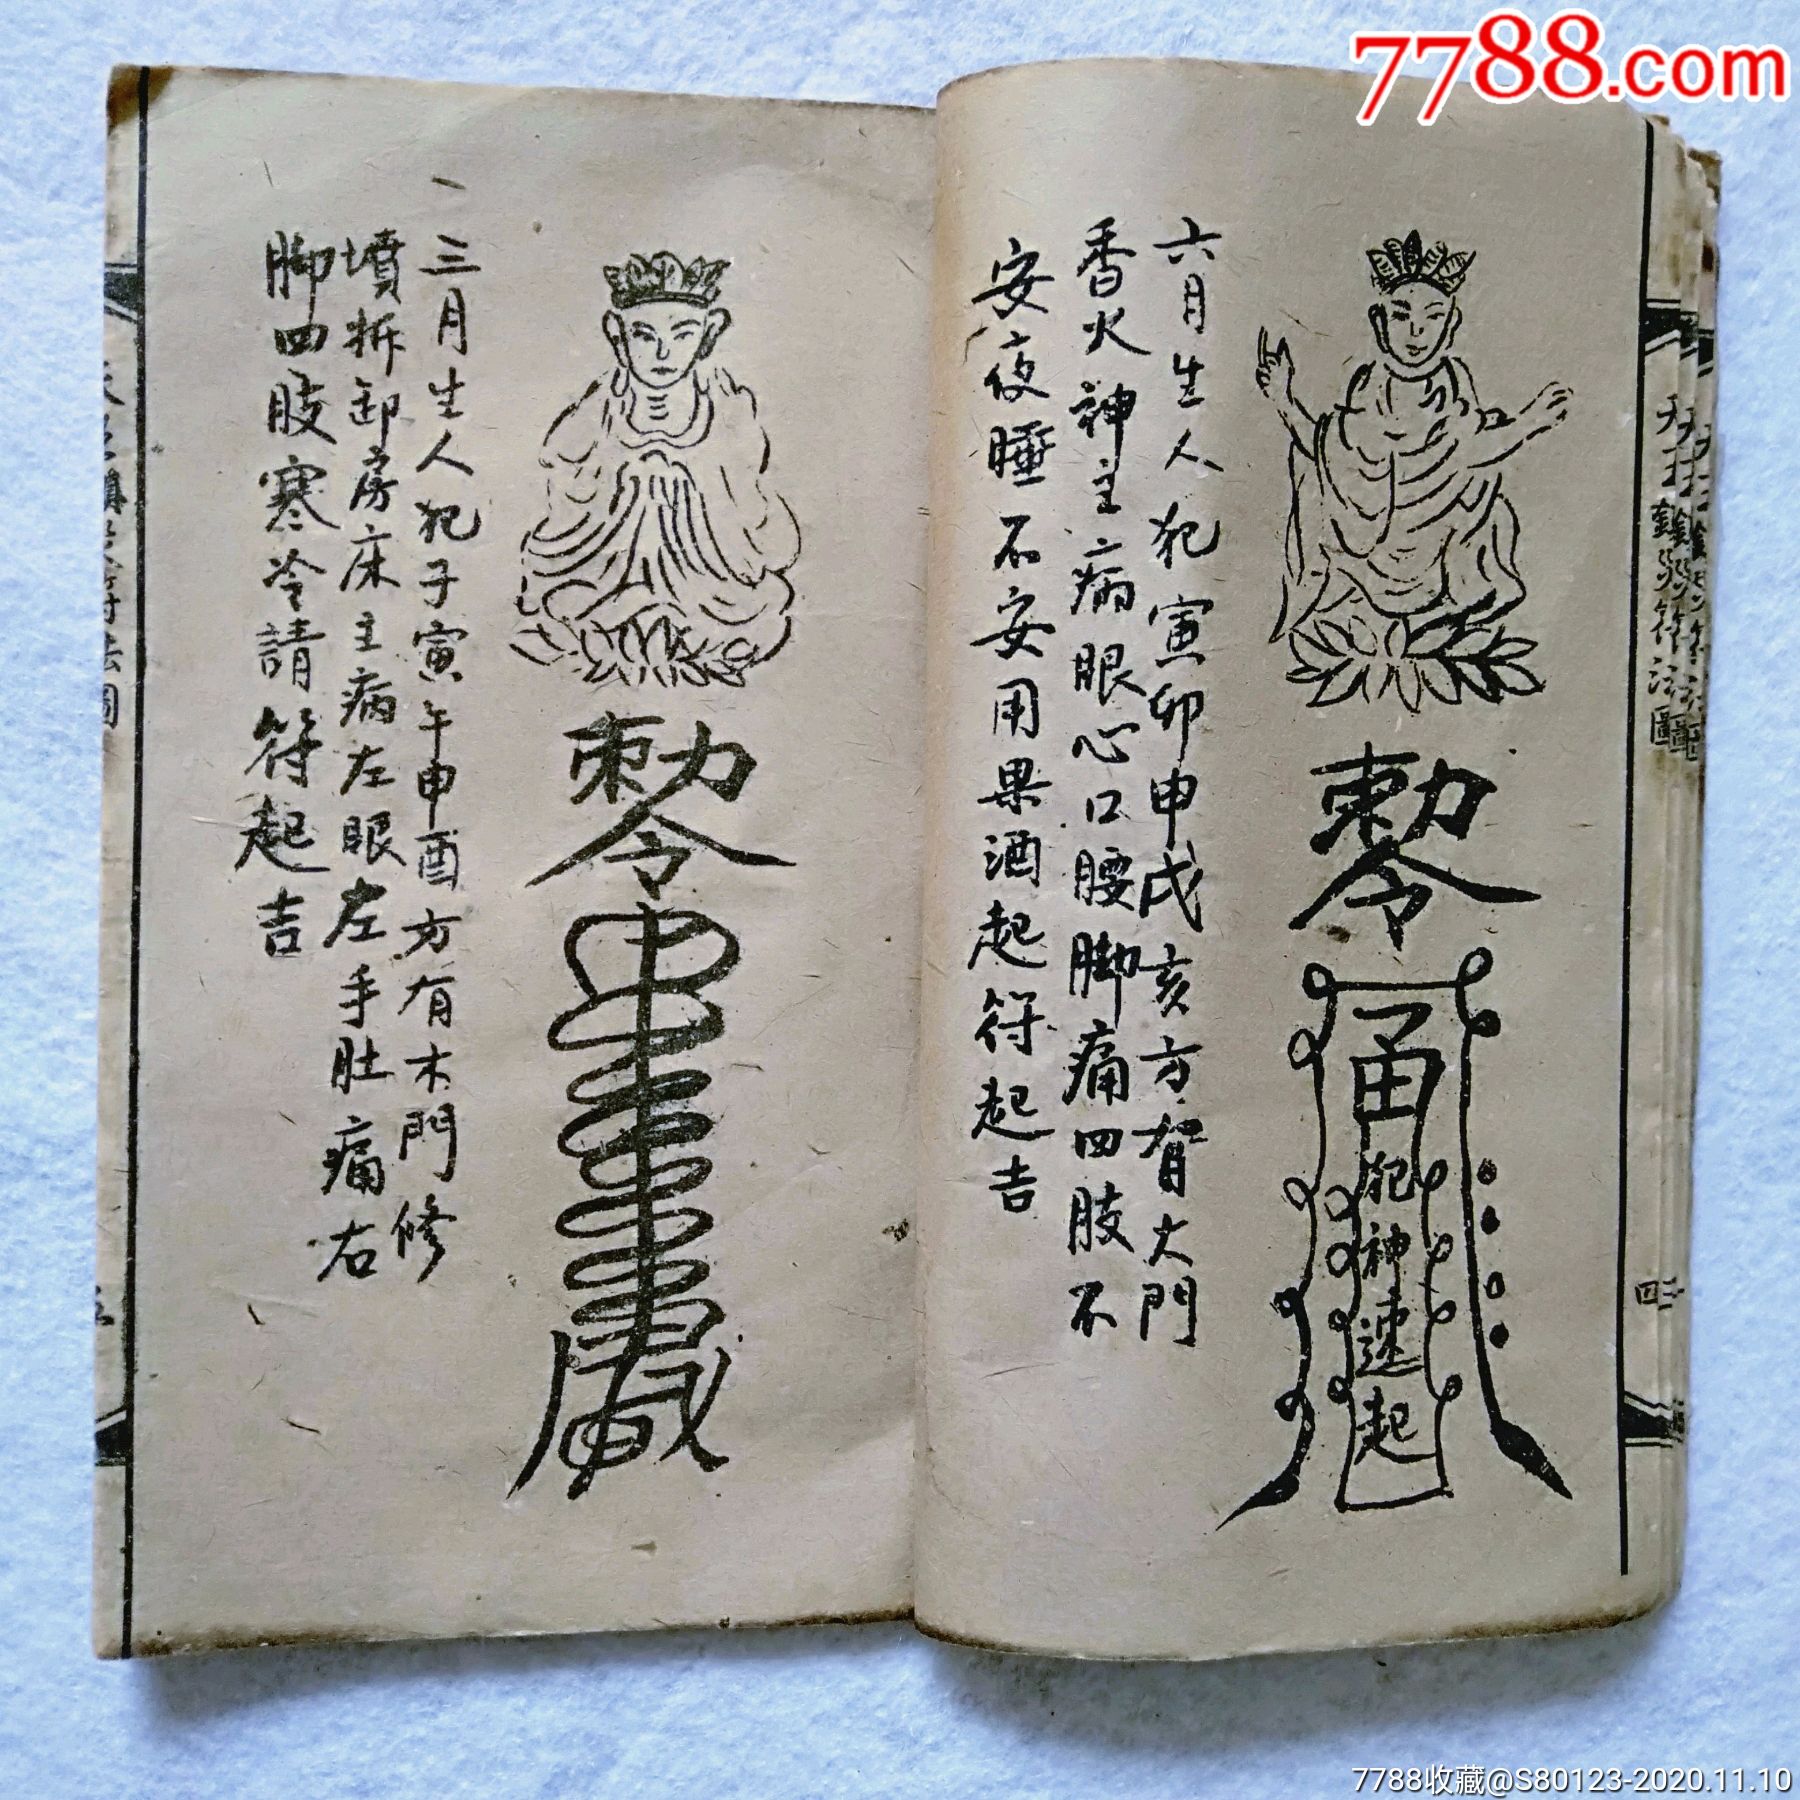 7788.com
六月生人犯寅卯申戌亥方有大門
香火神主病眼心口腰脚痛四肢不
安夜睡不安用果酒起符起吉
敕令
犯神速起
三月生人犯子寅午申酉方有木門修
墳拆卸房床主病左眼左手肚痛右
脚四肢寒冷請符起吉
敕令
符法圖
四
7788收藏@S80123-2020.11.10